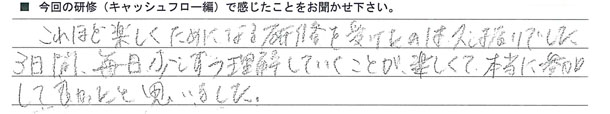 ■ 今回の研修（キャッシュフロー編）で感じたことをお聞かせ下さい。
これほど楽しくためになる研修を受けたのは久しぶりでした
3日間、毎日少しずつ理解していくことが、楽しくて、本当に参加
して良かったと思いました。